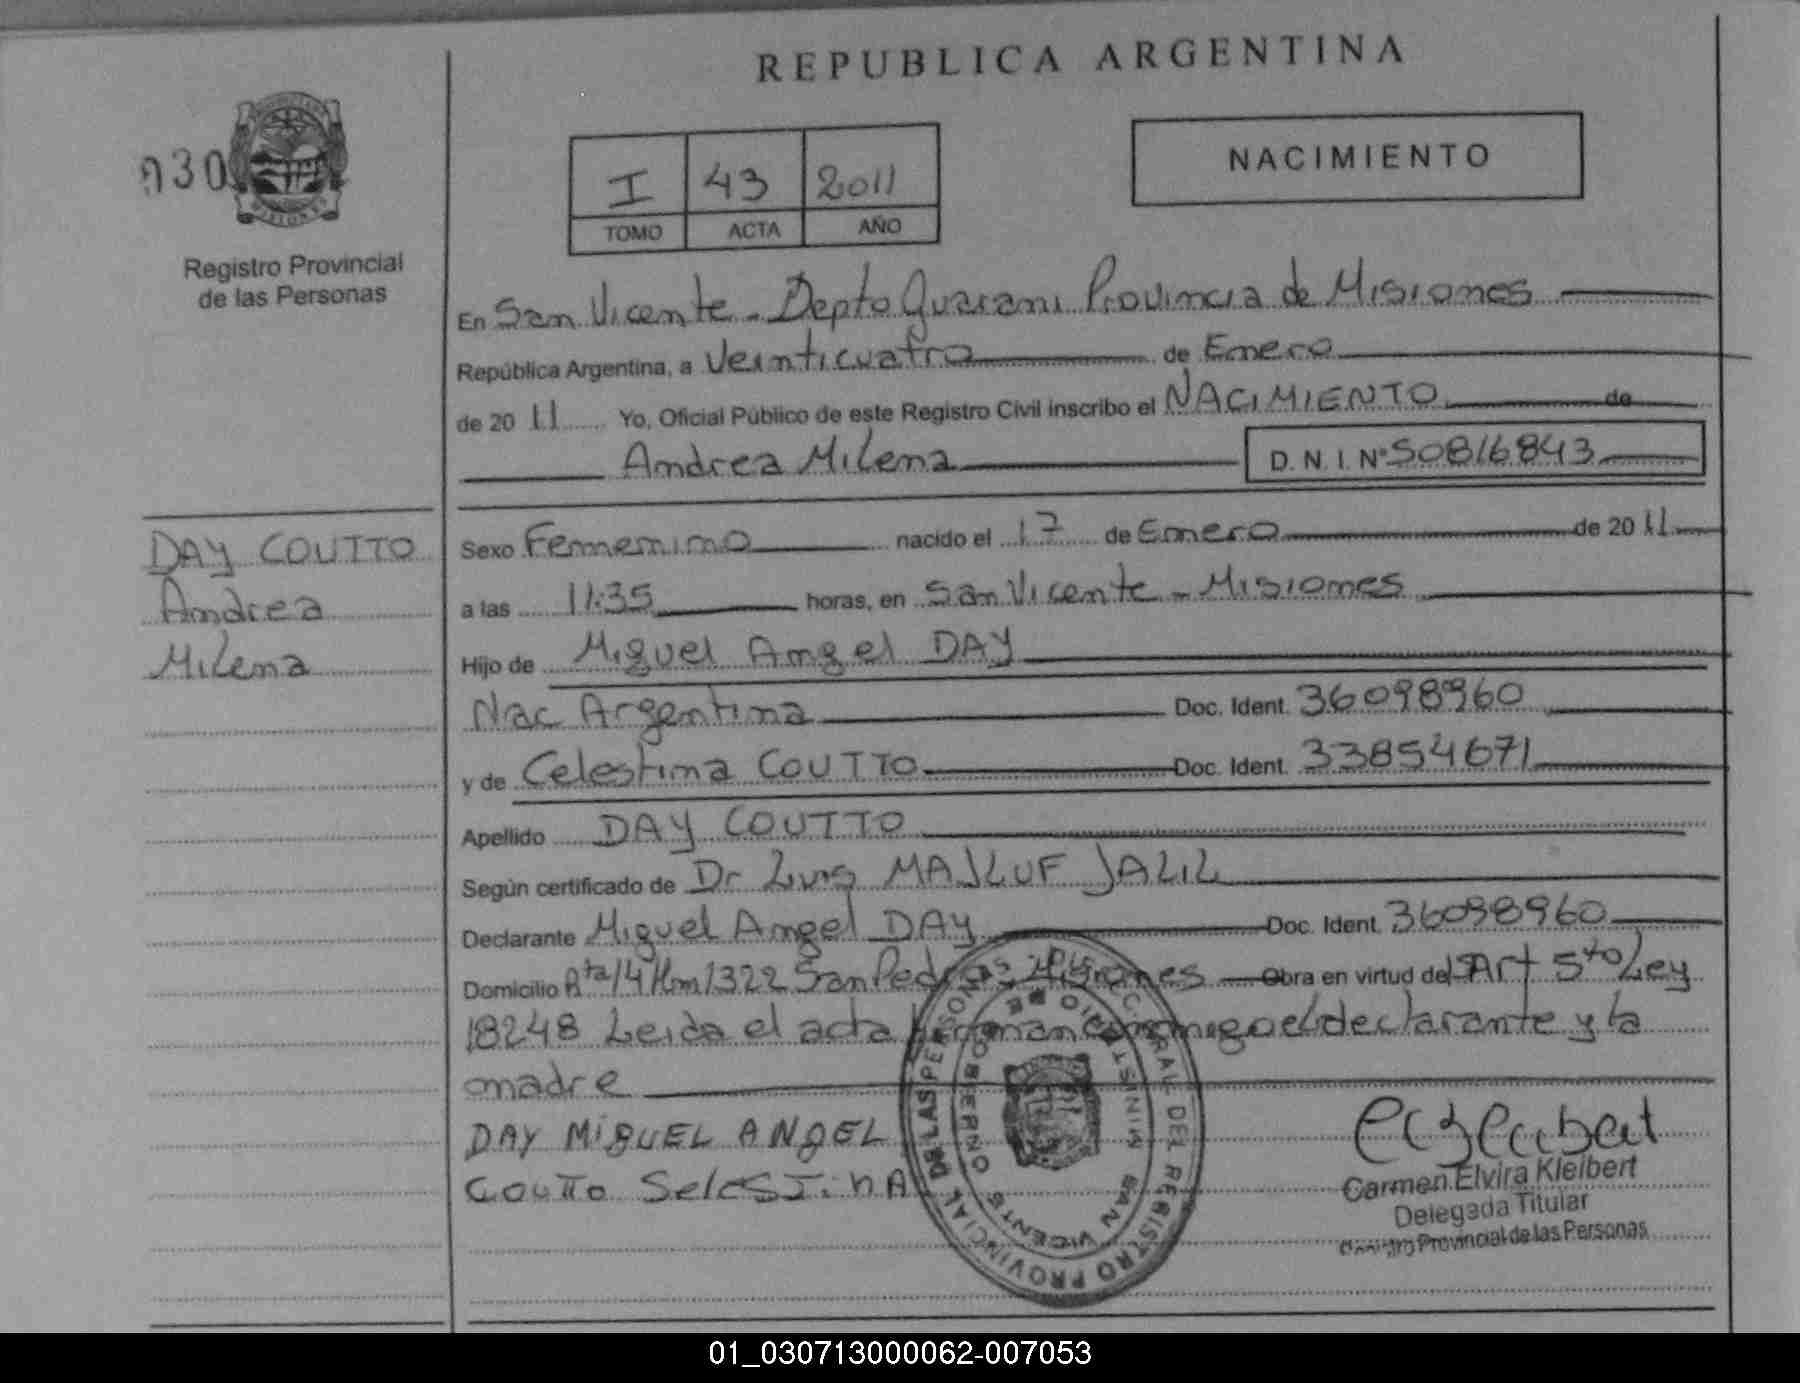 REPUBLICA ARGENTINA
030
Registro Provincial
de las Personas
I 43 2011
TOMO ACTA AÑO
NACIMIENTO
En San Vicente - Depto Guarani Provincia de Misiones
República Argentina, a Veinticuatro de Enero
de 2011 Yo, Oficial Público de este Registro Civil inscribo el NACIMIENTO de
Andrea Milena D. N. I. Nº 50816843
DAY COUTTO
Andrea
Milena
Sexo Femenino nacido el 17 de Enero de 2011
a las 11:35 horas, en San Vicente - Misiones
Hijo de Miguel Angel DAY
Nac Argentina Doc. Ident. 36098960
y de Celestina COUTTO Doc. Ident. 33854671
Apellido DAY COUTTO
Según certificado de Dr Luis MAJLUF JALIL
Declarante Miguel Angel DAY Doc. Ident. 36098960
Domicilio Rta 14 Km 1322 San Pedro Misiones Obra en virtud del Art 5to Ley
18248 Leida el acta firman conmigo el declarante y la
madre
DAY MiGUEL ANGEL
COUTTO SelesTiNA
REGISTRO PROVINCIAL DE LAS PERSONAS
MINISTERIO DE GOBIERNO
SAN VICENTE
Carmen Elvira Kleibert
Delegada Titular
Registro Provincial de las Personas
01_030713000062-007053